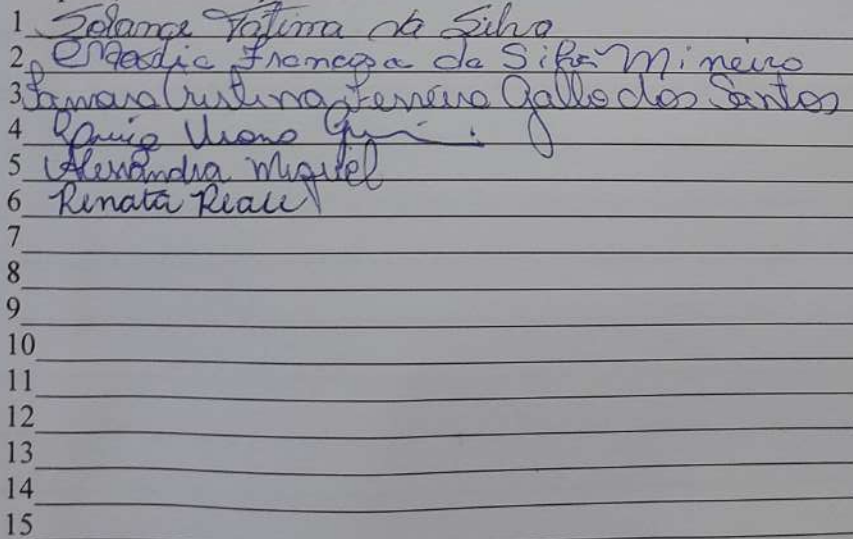 1 Solange Fatima da Silva
2 Francisca da Silva Mineiro
3 Samara Cristina Ferreira Gallo dos Santos
4
5 Alessandra Miguel
6 Renata Reale
7
8
9
10
11
12
13
14
15